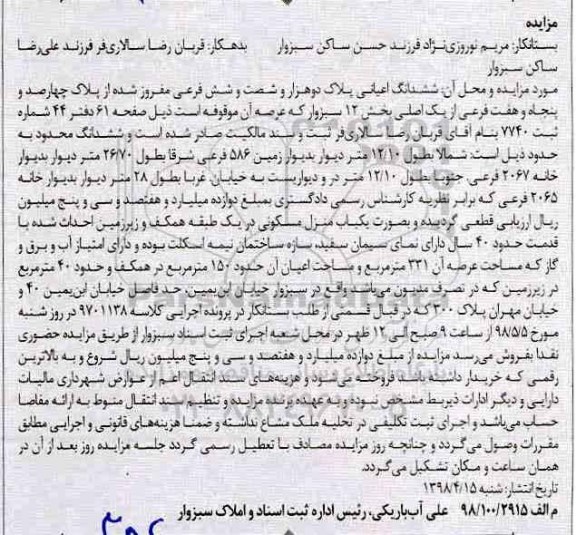 مزایده
بستانکار: مریم نوروزی‌نژاد فرزند حسن ساکن سبزوار     بدهکار: قربان رضا سالاری‌فر فرزند علی‌رضا
ساکن سبزوار
مورد مزایده و محل آن: ششدانگ اعیانی پلاک دوهزار و شصت و شش فرعی مفروز شده از پلاک چهارصد و
پنجاه و هفت فرعی از یک اصلی بخش ۱۲ سبزوار که عرصه آن موقوفه است ذیل صفحه ۶۱ دفتر ۴۴ شماره
ثبت ۷۷۴۰ بنام آقای قربان رضا سالاری‌فر ثبت و سند مالکیت صادر شده است و ششدانگ محدود به
حدود ذیل است: شمالا بطول ۱۲/۱۰ متر دیوار بدیوار زمین ۵۸۶ فرعی شرقا بطول ۲۶/۷۰ متر دیوار بدیوار
خانه ۲۰۶۷ فرعی. جنوبا بطول ۱۲/۱۰ متر در و دیواریست به خیابان. غربا بطول ۲۸ متر دیوار بدیوار خانه
۲۰۶۵ فرعی که برابر نظریه کارشناس رسمی دادگستری بمبلغ دوازده میلیارد و هفتصد و سی و پنج میلیون
ریال ارزیابی قطعی گردیده و بصورت یکباب منزل مسکونی در یک طبقه همکف و زیرزمین احداث شده با
قدمت حدود ۴۰ سال دارای نمای سیمان سفید، سازه ساختمان نیمه اسکلت بوده و دارای امتیاز آب و برق و
گاز که مساحت عرصه آن ۳۳۱ مترمربع و مساحت اعیان آن حدود ۱۵۰ مترمربع در همکف و حدود ۴۰ مترمربع
در زیرزمین که در تصرف مدیون می‌باشد واقع در سبزوار خیابان ابن‌یمین، حد فاصل خیابان ابن‌یمین ۴۰ و
خیابان مهران پلاک ۳۰۰ که در قبال قسمتی از طلب بستانکار در پرونده اجرایی کلاسه ۹۷۰۱۱۳۸ در روز شنبه
مورخ ۹۸/۵/۵ از ساعت ۹ صبح الی ۱۲ ظهر در محل شعبه اجرای ثبت اسناد سبزوار از طریق مزایده حضوری
نقدا بفروش می‌رسد مزایده از مبلغ دوازده میلیارد و هفتصد و سی و پنج میلیون ریال شروع و به بالاترین
رقمی که خریدار داشته باشد فروخته می‌شود و هزینه‌های سند انتقال اعم از عوارض شهرداری مالیات
دارایی و دیگر ادارات ذیربط مشخص نبوده و به عهده برنده مزایده و تنظیم سند انتقال منوط به ارائه مفاصا
حساب می‌باشد و اجرای ثبت تکلیفی در تخلیه ملک مشاع نداشته و ضمنا هزینه‌های قانونی و اجرایی مطابق
مقررات وصول می‌گردد و چنانچه روز مزایده مصادف با تعطیل رسمی گردد جلسه مزایده روز بعد از آن در
همان ساعت و مکان تشکیل می‌گردد.
تاریخ انتشار: شنبه ۱۳۹۸/۴/۱۵
م الف ۹۸/۱۰۰/۲۹۱۵   علی آب‌باریکی، رئیس اداره ثبت اسناد و املاک سبزوار